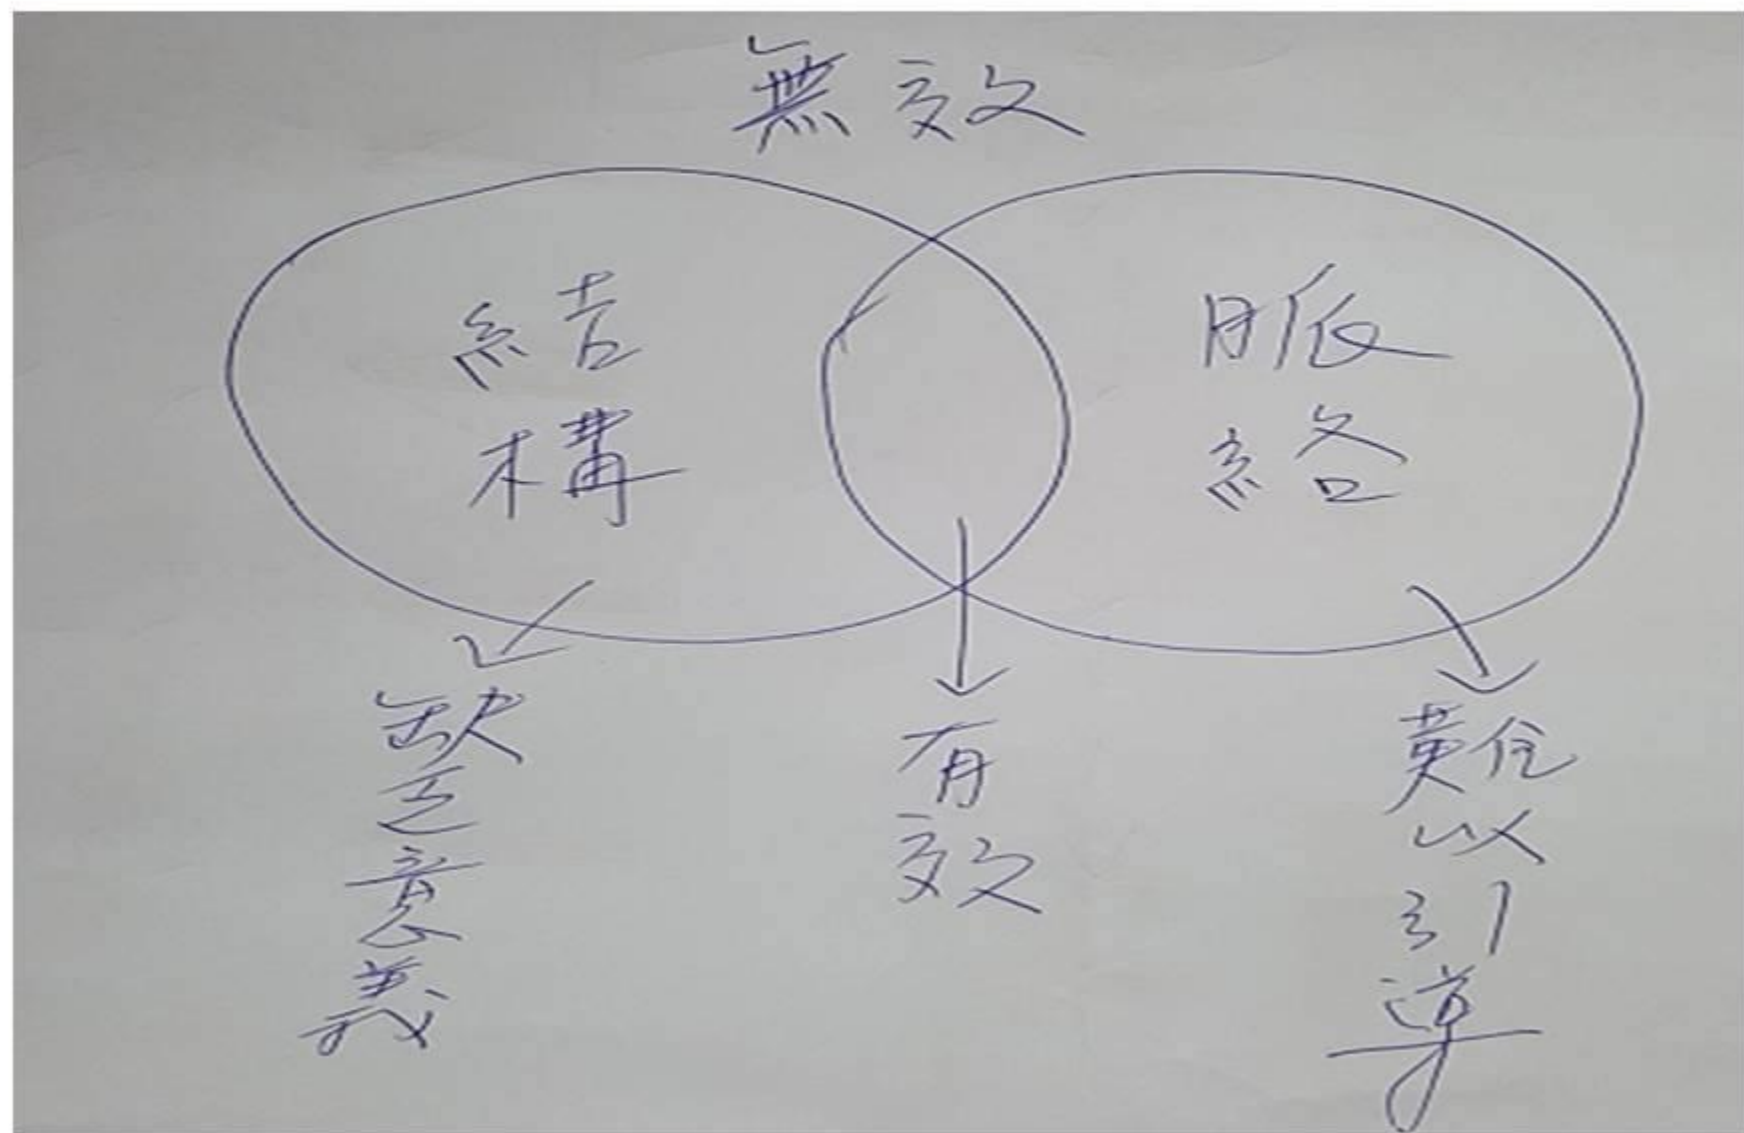 無效
結構
脈絡
缺乏意義
有效
難以引導